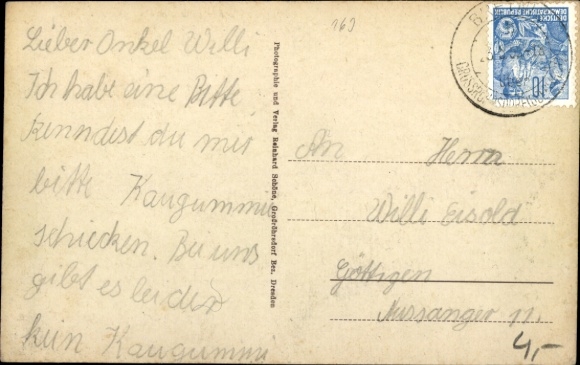 163
Lieber Onkel Willi
Ich habe eine Bitte
kenndest du mir
bitte Kaugummi
schicken. Bei uns
gibt es leider
kein Kaugummi
Photographie und Verlag Reinhard Schöne, Großröhrsdorf Bez. Dresden
An Herrn
Willi Eisold
Göttigen
Nussanger 11.
4,-
DEUTSCHE
DEMOKRATISCHE REPUBLIK
10